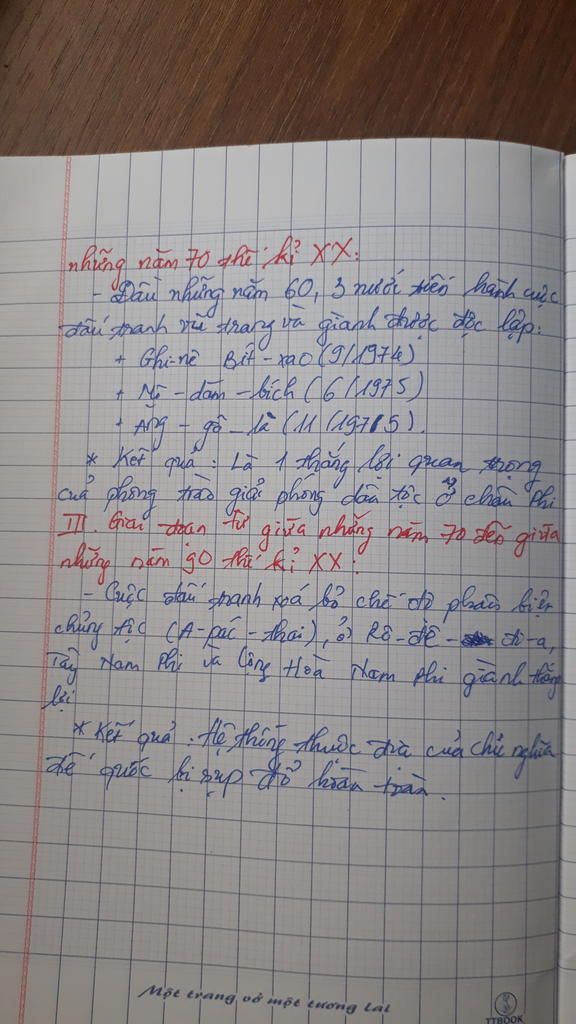 những năm 70 thế kỉ XX:
- Đầu những năm 60, 3 nước tiến hành cuộc
đấu tranh vũ trang và giành được độc lập:
+ Ghi-nê Bít-xao (9/1974)
+ Mô-dăm-bích (6/1975)
+ Ăng-gô-la (11/1975).
* Kết quả: Là 1 thắng lợi quan trọng
của phong trào giải phóng dân tộc ở châu Phi
III. Giai đoạn từ giữa những năm 70 đến giữa
những năm 90 thế kỉ XX:
- Cuộc đấu tranh xoá bỏ chế độ phân biệt
chủng tộc (A-pác-thai), ở Rô-đê-di-a,
Tây Nam Phi và Cộng Hoà Nam Phi giành thắng
lợi
* Kết quả: Hệ thống thuộc địa của chủ nghĩa
đế quốc bị sụp đổ hoàn toàn.
Một trang vở một tương lai
TTBOOK